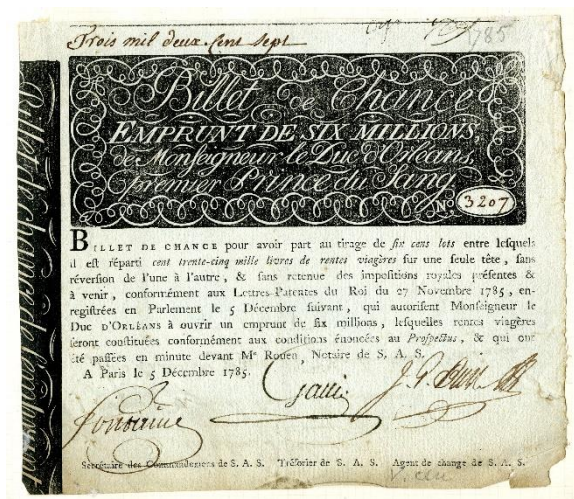 Trois mil deux Cent Sept
1785
Billet de Chance
EMPRUNT DE SIX MILLIONS,
de Monſeigneur le Duc d'Orléans,
Premier Prince du Sang
No 3207
Billet de chance de
BILLET DE CHANCE pour avoir part au tirage de ſix cens lots entre leſquels
il eſt réparti cent trente-cinq mille livres de rentes viagères ſur une ſeule tête, ſans
réverſion de l'une à l'autre, & ſans retenue des impoſitions royales préſentes &
à venir, conformément aux Lettres-Patentes du Roi du 27 Novembre 1785, en-
regiſtrées en Parlement le 5 Décembre ſuivant, qui autoriſent Monſeigneur le
Duc D'ORLÉANS à ouvrir un emprunt de ſix millions, leſquelles rentes viagères
ſeront conſtituées conformément aux conditions énoncées au Proſpectus, & qui ont
été paſſées en minute devant Me Rouen, Notaire de S. A. S.
A Paris le 5 Décembre 1785.
Fontaine
Secrétaire des Commandemens de S. A. S. Tréſorier de S. A. S. Agent de change de S. A. S.